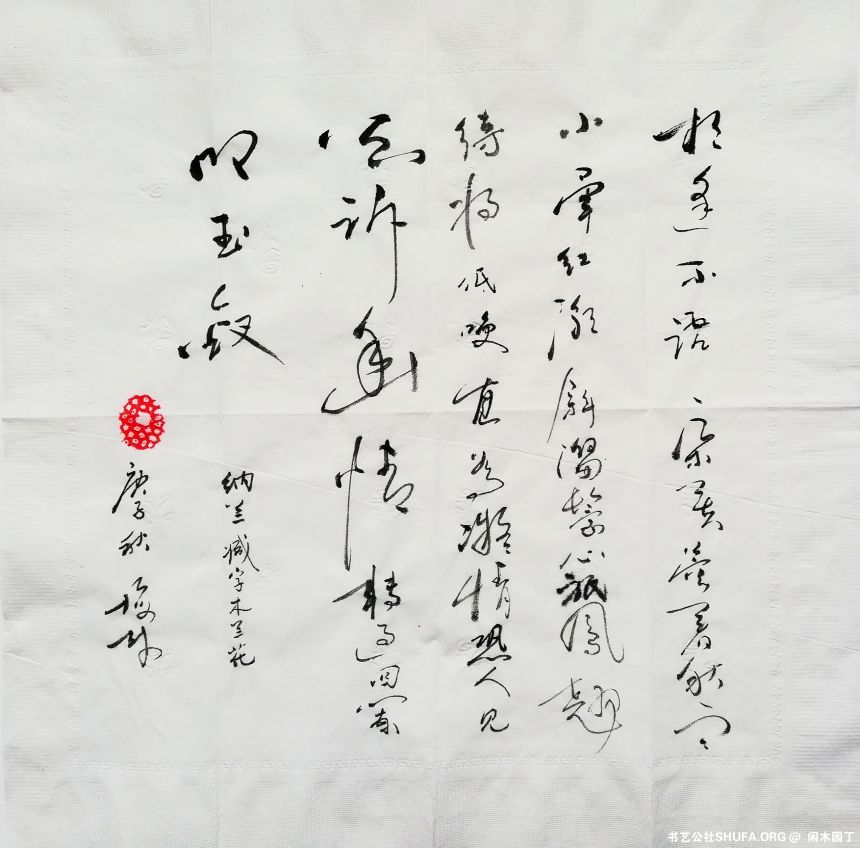 相逢不语一朵芙蓉著秋雨
小暈红潮斜溜鬟心祇鳳翘
待将低唤直為凝情恐人见
欲诉幽情轉過回阑
叩玉釵
纳兰减字木兰花
庚子秋
书艺公社SHUFA.ORG @ 闲木园丁